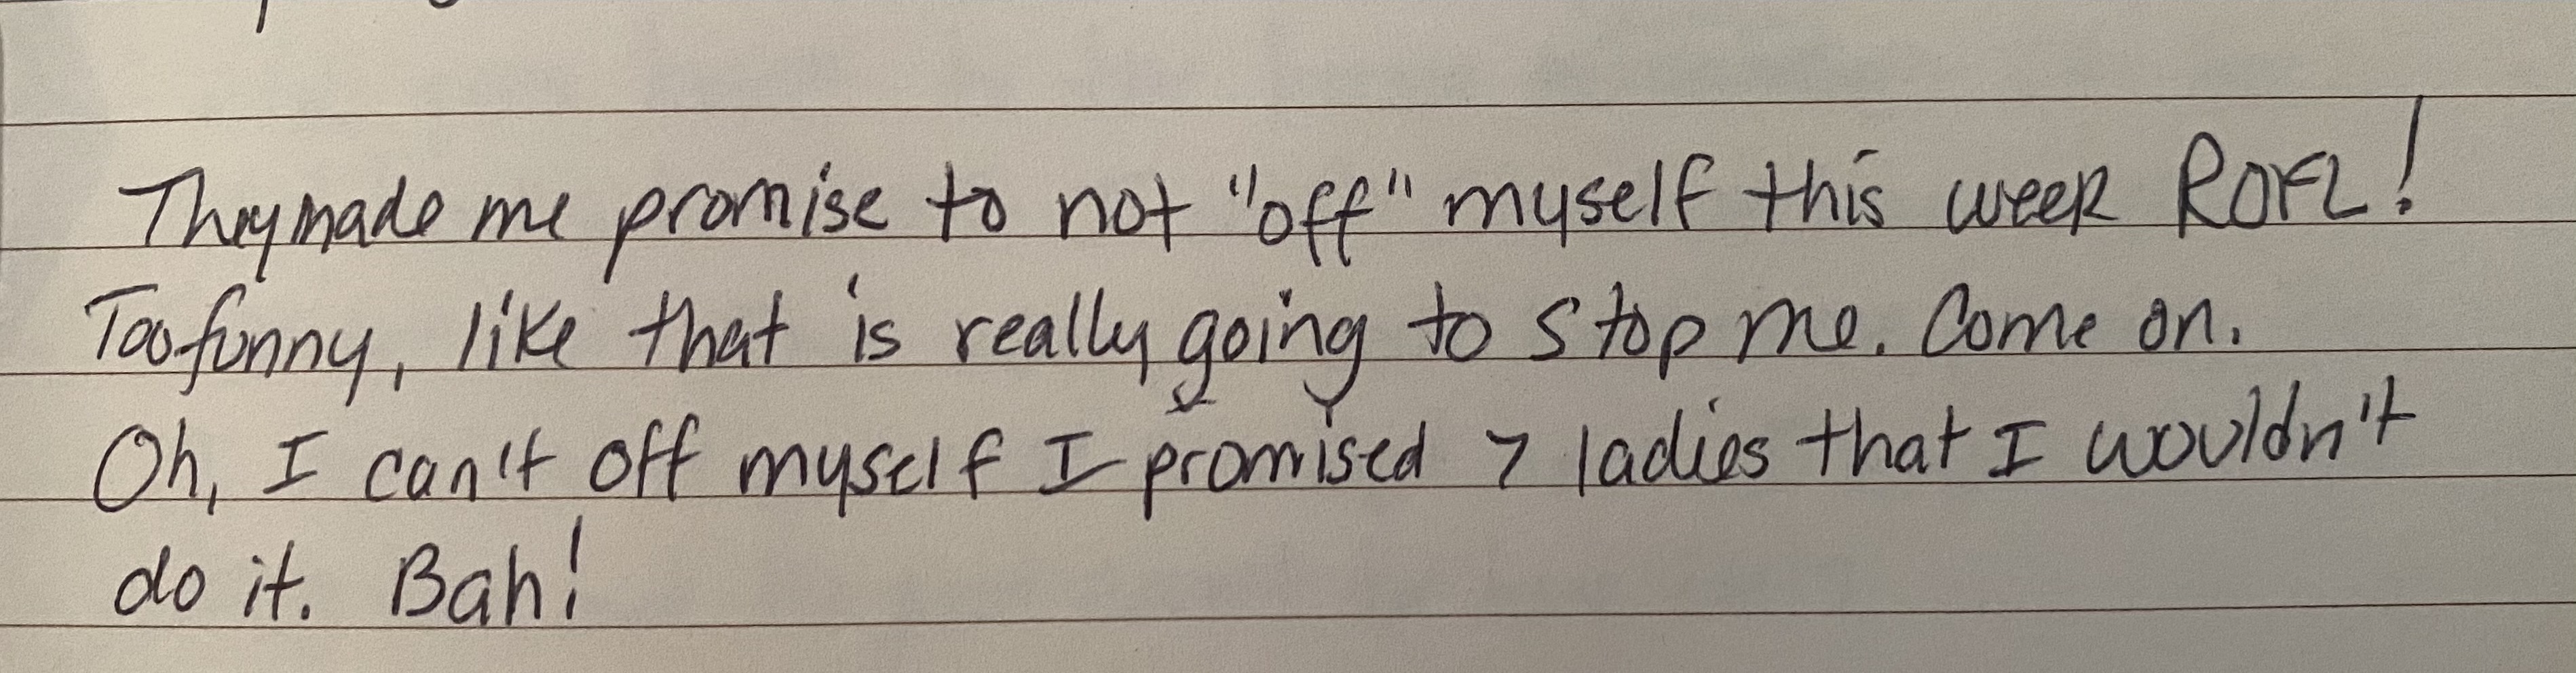 They made me promise to not "off" myself this week ROFL!
Too funny, like that is really going to stop me. Come on.
Oh, I can't off myself I promised 7 ladies that I wouldn't
do it. Bah!